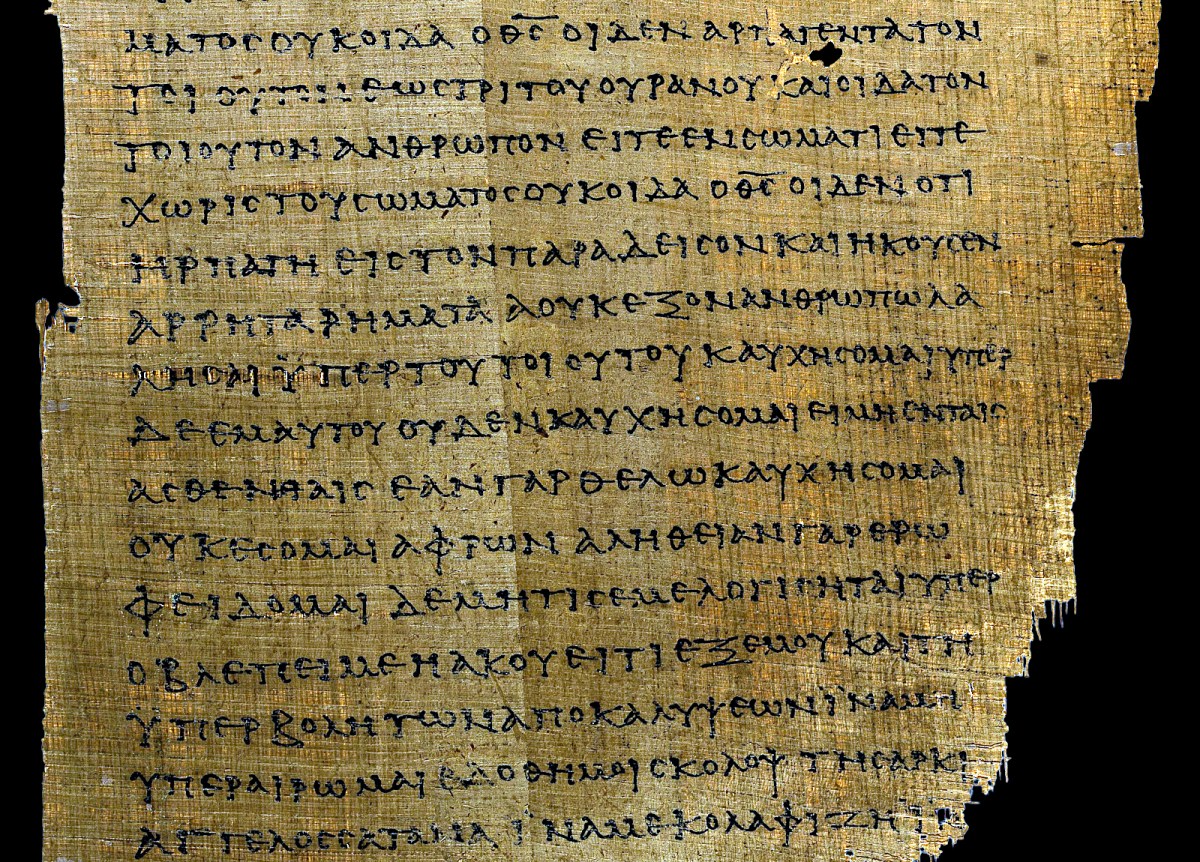 ΜΑΤΟϹΟΥΚΟΙΔΑ ΟΘ̅Ϲ̅ ΟΙΔΕΝ ΑΡΠΑΓΕΝΤΑΤΟΝ
ΤΟΙΟΥΤΟΝΕΩϹΤΡΙΤΟΥΟΥΡΑΝΟΥ ΚΑΙΟΙΔΑΤΟΝ
ΤΟΙΟΥΤΟΝ ΑΝΘΡΩΠΟΝ ΕΙΤΕΕΝϹΩΜΑΤΙΕΙΤΕ
ΧΩΡΙϹΤΟΥϹΩΜΑΤΟϹΟΥΚΟΙΔΑ ΟΘ̅Ϲ̅ ΟΙΔΕΝ ΟΤΙ
ΗΡΠΑΓΗ ΕΙϹΤΟΝΠΑΡΑΔΕΙϹΟΝΚΑΙΗΚΟΥϹΕΝ
ΑΡΡΗΤΑ ΡΗΜΑΤΑ ΑΟΥΚΕΞΟΝΑΝΘΡΩΠΩΛΑ
ΛΗϹΑΙ ΫΠΕΡΤΟΥ ΤΟΙΟΥΤΟΥ ΚΑΥΧΗϹΟΜΑΙΥΠΕΡ
ΔΕΕΜΑΥΤΟΥ ΟΥΔΕΝΚΑΥΧΗϹΟΜΑΙΕΙΜΗΕΝΤΑΙϹ
ΑϹΘΕΝΕΙΑΙϹ ΕΑΝΓΑΡΘΕΛΩΚΑΥΧΗϹΟΜΑΙ
ΟΥΚΕϹΟΜΑΙ ΑΦΡΩΝ ΑΛΗΘΕΙΑΝΓΑΡΕΡΩ
ΦΕΙΔΟΜΑΙ ΔΕΜΗΤΙϹΕΜΕΛΟΓΙϹΗΤΑΙΥΠΕΡ
ΟΒΛΕΠΕΙΜΕΗΑΚΟΥΕΙΤΙΕΞΕΜΟΥΚΑΙΤΗ
ΫΠΕΡΒΟΛΗΤΩΝΑΠΟΚΑΛΥΨΕΩΝΪΝΑΜΗ
ΥΠΕΡΑΙΡΩΜΑΙΕΔΟΘΗΜΟΙϹΚΟΛΟΨ ΤΗϹΑΡΚΙ
ΑΓΓΕΛΟϹϹΑΤΑΝΑ ΪΝΑΜΕΚΟΛΑΦΙΖΗ ΙΝ